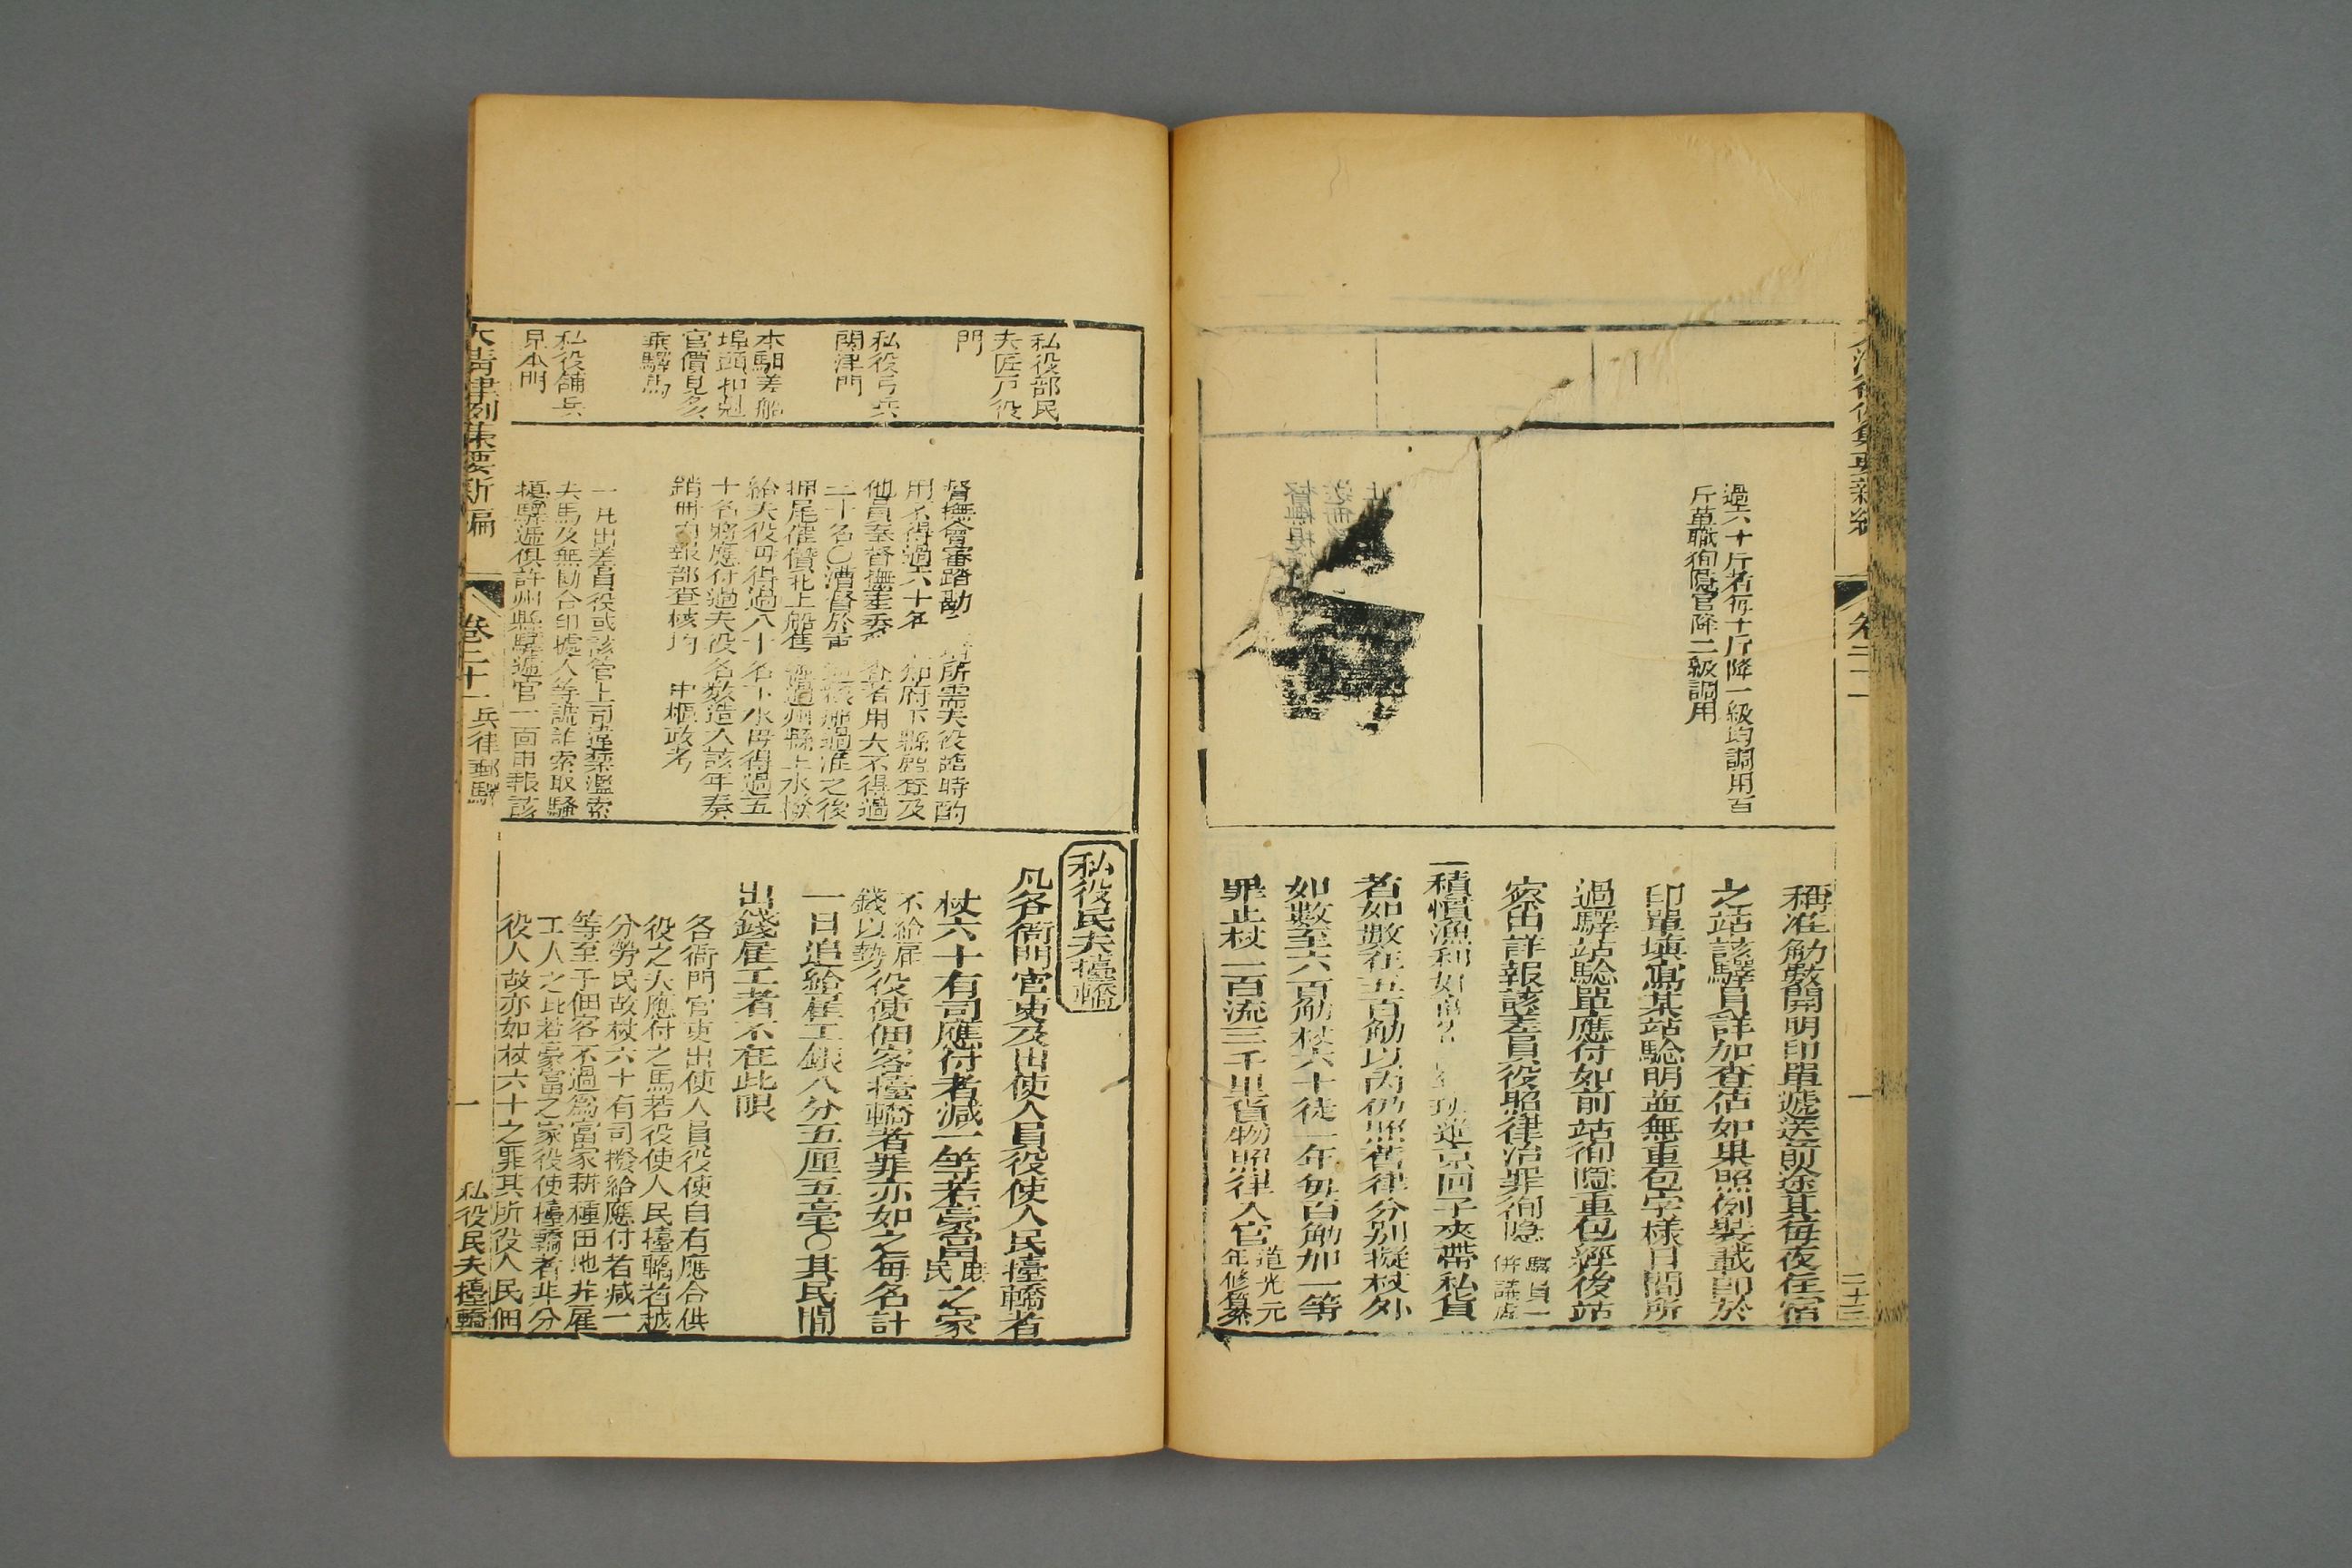 過六十斤者每十斤降一級均調用百
斤革職徇隱官降二級調用
稱准觔數開明印單遞送前途其每夜住宿
之站該驛員詳加查估如果照例裝載卽於
印單填寫某站騐明並無重包字樣日間所
過驛站騐單應付如前站徇隱重包經後站
察出詳報該差員役照律治罪徇隱驛員一
併議處
一積慣漁利
進京回子夾帶私貨
者如數在五百觔以內仍照舊律分別擬杖外
如數至六百觔杖六十徒一年每百觔加一等
罪止杖一百流三千里貨物照律入官道光元
年修纂
二十三
私役部民
夫匠戶役
門
私役弓兵
關津門
本駟差船
埠頭扣剋
官價見多
乘驛馬
私役舖兵
見本門
督撫會審踏勘
所需夫役臨時酌
用不得過六十名
知府下縣盤查及
他員奉督撫差委
查者用夫不得過
二十名○漕督於重
過淮之後
押尾催儧北上船隻
經過州縣上水撥
給夫役毋得過八十名下水毋得過五
十名將應付過夫役名數造入該年奏
銷冊內報部查核均 中樞政考
一凡出差員役或該管上司違禁濫索
夫馬及無勘合印據人等詭詐索取騷
擾驛遞俱許州縣驛遞官一面申報該
私役民夫擡轎
凡各衙門官吏及出使人員役使人民擡轎者
杖六十有司應付者減一等若豪富庶民之家
不給雇
錢以勢役使佃客擡轎者罪亦如之每名計
一日追給雇工銀八分五厘五毫○其民間
出錢雇工者不在此限
各衙門官吏出使人員役使自有應合供
役之夫應付之馬若役使人民擡轎者越
分勞民故杖六十有司撥給應付者減一
等至于佃客不過爲富家耕種田地幷雇
工人之比若豪富之家役使擡轎者非分
役人故亦如杖六十之罪其所役人民佃
大清律例集要新編 卷二十一 兵律郵驛 一 私役民夫擡轎